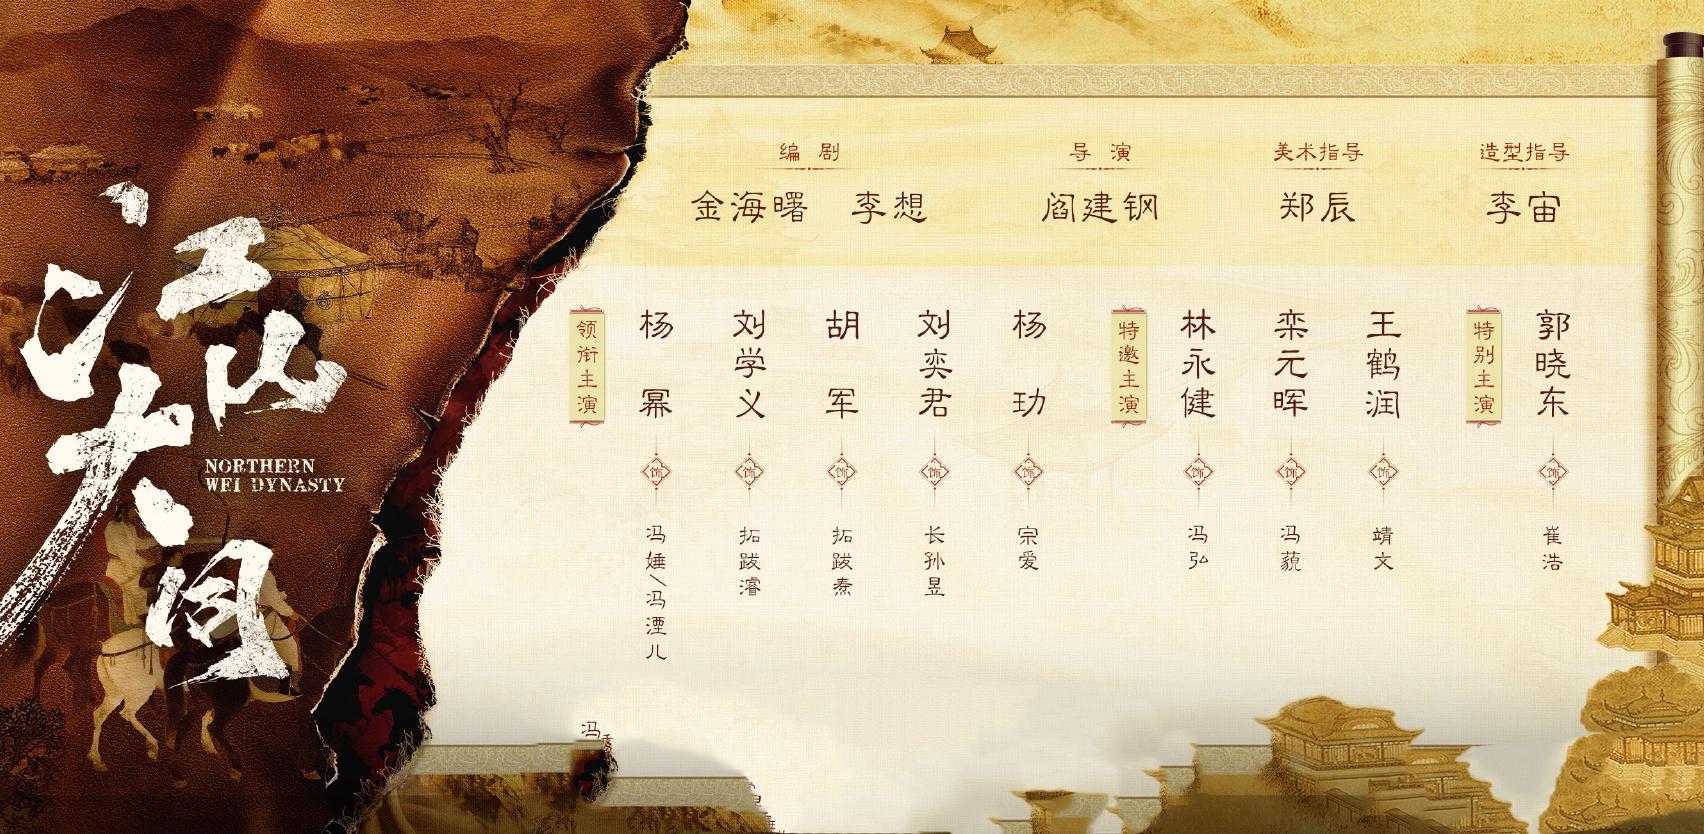 江山大同
NORTHERN
WEI DYNASTY
编 剧
金海曙 李想
导 演
阎建钢
美术指导
郑辰
造型指导
李宙
领衔主演
杨幂
饰
冯娷/冯湮儿
刘学义
饰
拓跋濬
胡军
饰
拓跋焘
刘奕君
饰
长孙昱
杨玏
饰
宗爱
特邀主演
林永健
饰
冯弘
栾元晖
饰
冯藐
王鹤润
饰
靖文
特别主演
郭晓东
饰
崔浩
冯